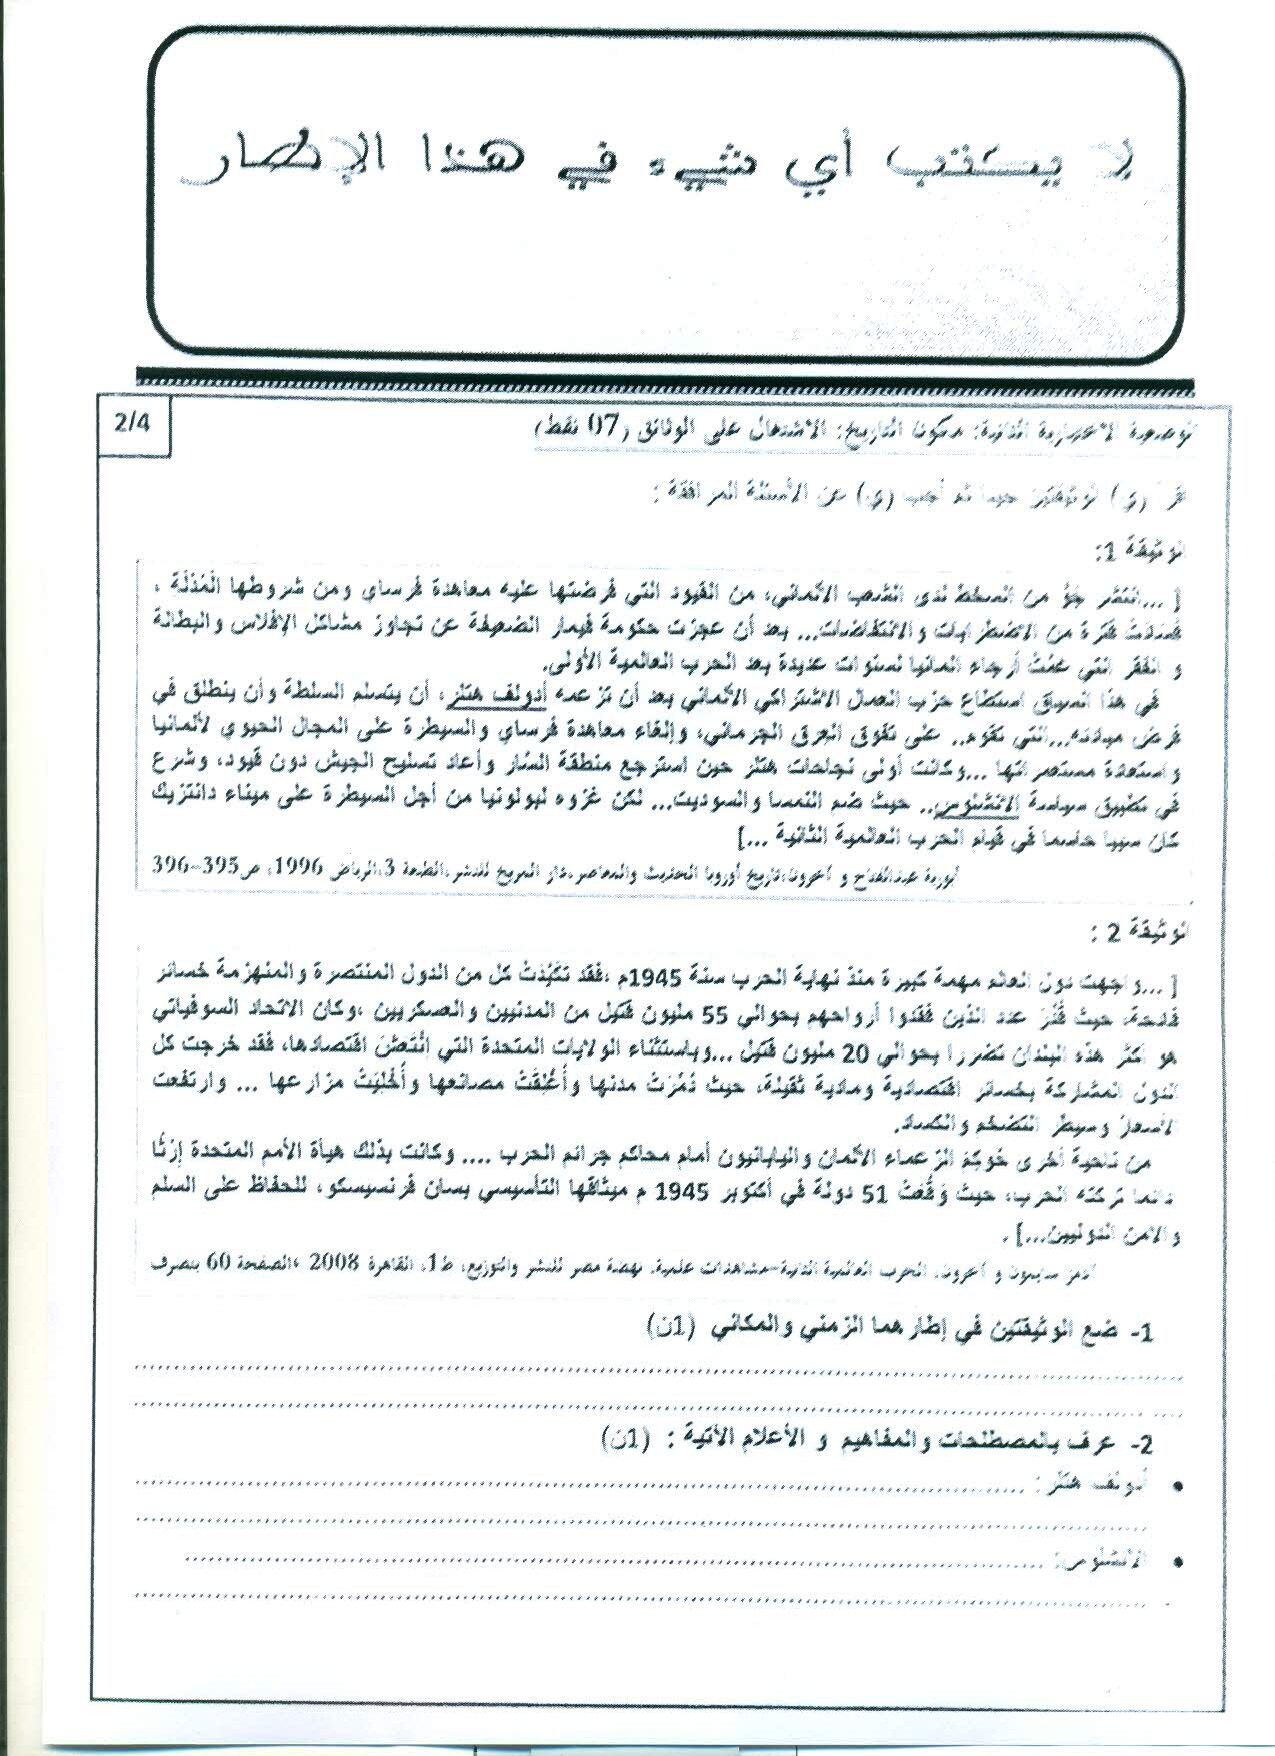 لا يكتب أي شيء في هذا الإطار
2/4
الوضعية الاختبارية الثانية: مكون التاريخ: الاشتغال على الوثائق (07 نقط)
اقرأ (ي) الوثيقتين جيدا ثم أجب (ي) عن الأسئلة المرافقة :
الوثيقة 1:
[ ...انتشر جو من السخط لدى الشعب الألماني، من القيود التي فرضتها عليه معاهدة فرساي ومن شروطها المُذلّة ،
فسادت فترة من الاضطرابات والانتفاضات... بعد أن عجزت حكومة فيمار الضعيفة عن تجاوز مشاكل الإفلاس والبطالة
و الفقر التي عمّت أرجاء ألمانيا لسنوات عديدة بعد الحرب العالمية الأولى.
في هذا السياق استطاع حزب العمال الاشتراكي الألماني بعد أن تزعمه أدولف هتلر، أن يتسلم السلطة وأن ينطلق في
فرض مبادئه...التي تقوم.. على تفوق العرق الجرماني، وإلغاء معاهدة فرساي والسيطرة على المجال الحيوي لألمانيا
واستعادة مستعمراتها ...وكانت أولى نجاحات هتلر حين استرجع منطقة السّار وأعاد تسليح الجيش دون قيود، وشرع
في تطبيق سياسة الأنشلوس.. حيث ضم النمسا والسوديت... لكن غزوه لبولونيا من أجل السيطرة على ميناء دانتزيك
كان سببا حاسما في قيام الحرب العالمية الثانية ...]
أبورية عبدالفتاح و آخرون،تاريخ أوروبا الحديث والمعاصر،دار المريخ للنشر،الطبعة 3،الرياض 1996، ص395-396
الوثيقة 2 :
[ ...واجهت دول العالم مهمة كبيرة منذ نهاية الحرب سنة 1945م ،فقد تكبّدت كل من الدول المنتصرة والمنهزمة خسائر
فادحة، حيث قُدّر عدد الذين فقدوا أرواحهم بحوالي 55 مليون قتيل من المدنيين والعسكريين ،وكان الاتحاد السوفياتي
هو أكثر هذه البلدان تضررا بحوالي 20 مليون قتيل ...وباستثناء الولايات المتحدة التي انتعش اقتصادها، فقد خرجت كل
الدول المشاركة بخسائر اقتصادية ومادية ثقيلة، حيث دُمّرت مدنها وأُغلقت مصانعها وأُخليت مزارعها ... وارتفعت
الأسعار وسيطر التضخم والكساد.
من ناحية أخرى حُوكم الزعماء الألمان واليابانيون أمام محاكم جرائم الحرب .... وكانت بذلك هيأة الأمم المتحدة إرثا
دائما تركته الحرب، حيث وقّعت 51 دولة في أكتوبر 1945 م ميثاقها التأسيسي بسان فرنسيسكو، للحفاظ على السلم
والأمن الدوليين...] .
سايمون و آخرون. الحرب العالمية الثانية-مشاهدات علمية. نهضة مصر للنشر والتوزيع، ط1، القاهرة 2008 ،الصفحة 60 بتصرف
1- ضع الوثيقتين في إطارهما الزمني والمكاني (1ن)
2- عرف بالمصطلحات والمفاهيم و الأعلام الآتية : (1ن)
• أدولف هتلر :
• الأنشلوس: